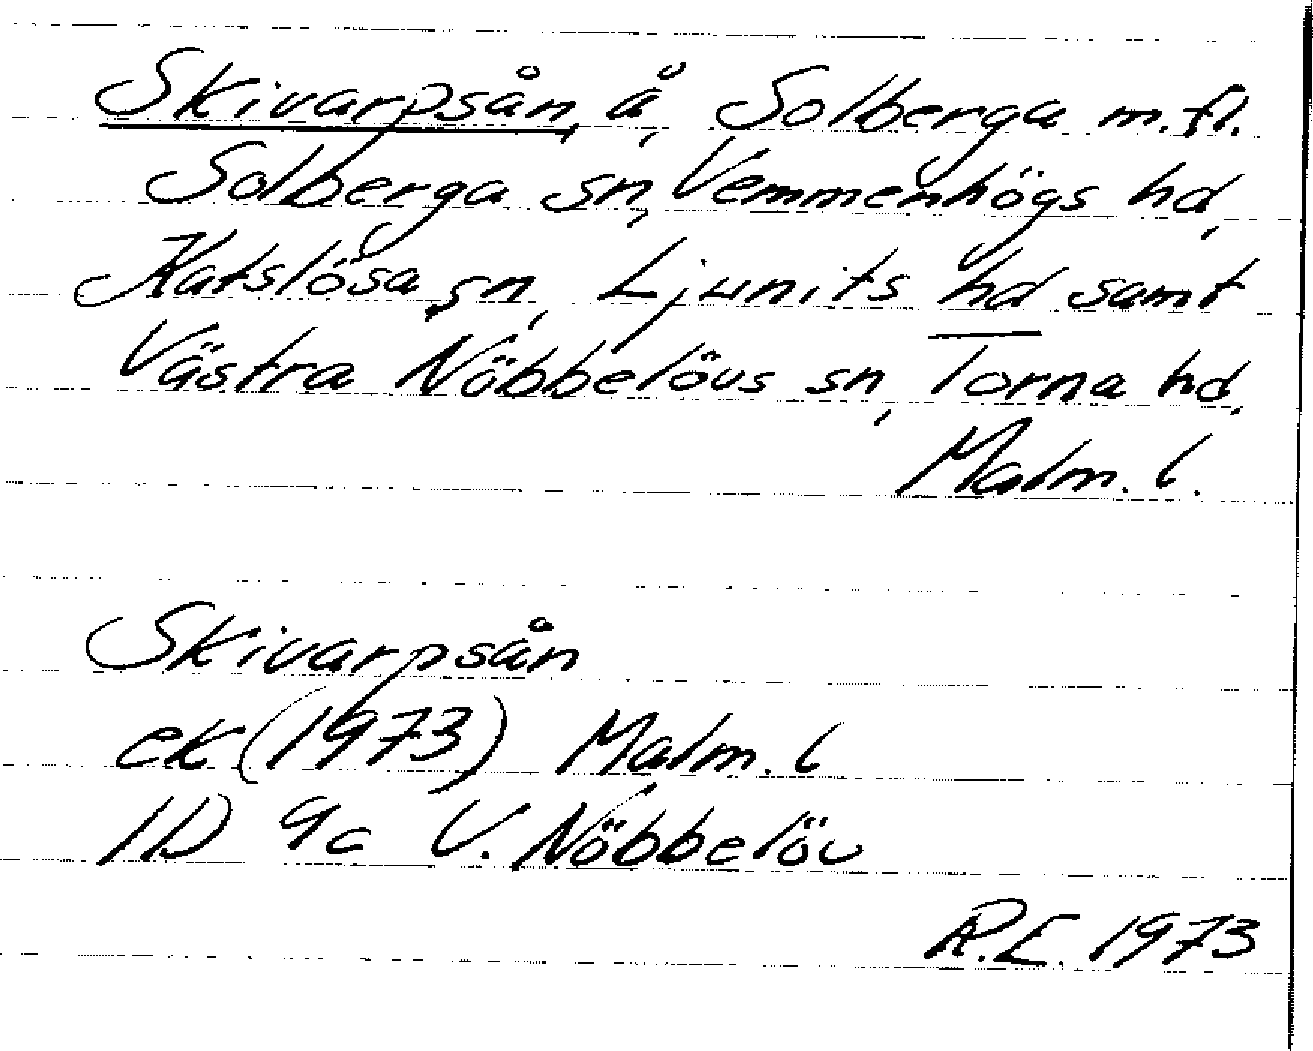 Skivarpsån, å, Solberga m.fl.
Solberga sn, Vemmenhögs hd,
Katslösa sn, Ljunits hd samt
Västra Nöbbelövs sn, Torna hd,
Malm. l.
Skivarpsån
ek (1973) Malm. l
1D 9c V. Nöbbelöv
R.E. 1973